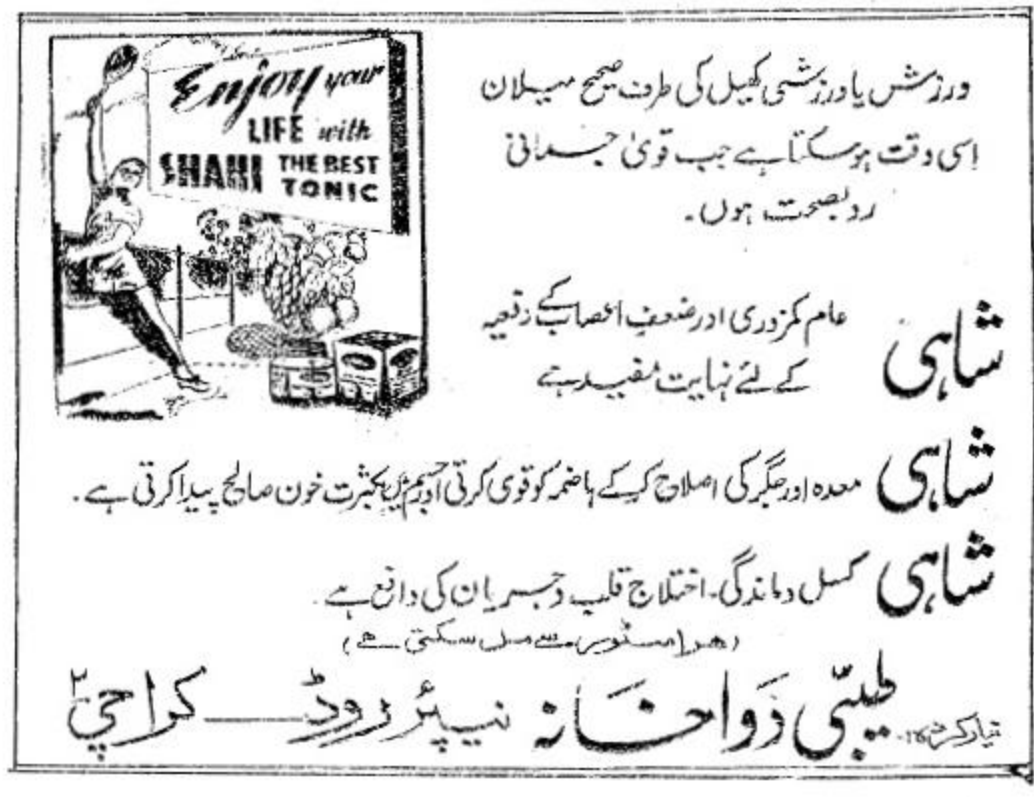 Enjoy your
LIFE with
SHAHI THE BEST
TONIC
ورزش یا ورزشی کھیل کی طرف صحیح میلان
اسی وقت ہوسکتا ہے جب قویٰ جسمانی
روبصحت ہوں۔
شاہی عام کمزوری اور ضعف اعصاب کے دفعیہ
کے لئے نہایت مفید ہے
شاہی معدہ اور جگر کی اصلاح کرکے ہاضمہ کو قوی کرتی اور جسم میں بکثرت خون صالح پیدا کرتی ہے۔
شاہی کسل و ماندگی۔ اختلاج قلب و جریان کی دافع ہے۔
(ھر اسٹور سے مل سکتی ھے)
تیار کردہ طبّی دَواخَانہ نیپئر روڈ — کراچی ۲